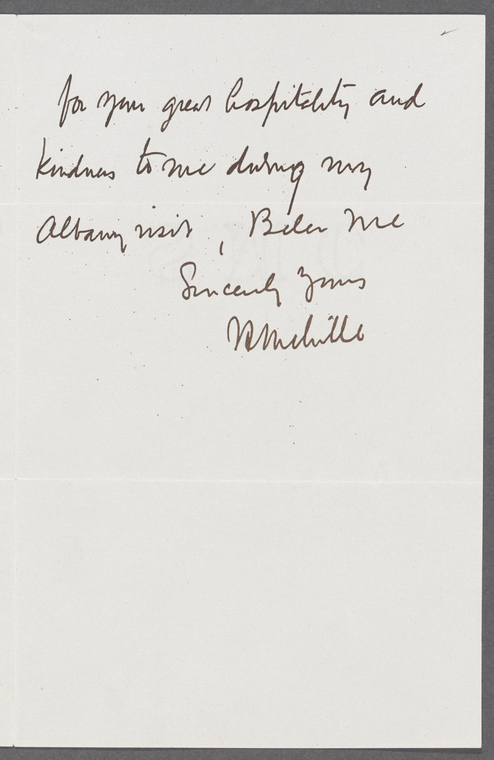 for your great hospitality and
kindness to me during my
Albany visit, Believe Me
Sincerely Yours
Melville